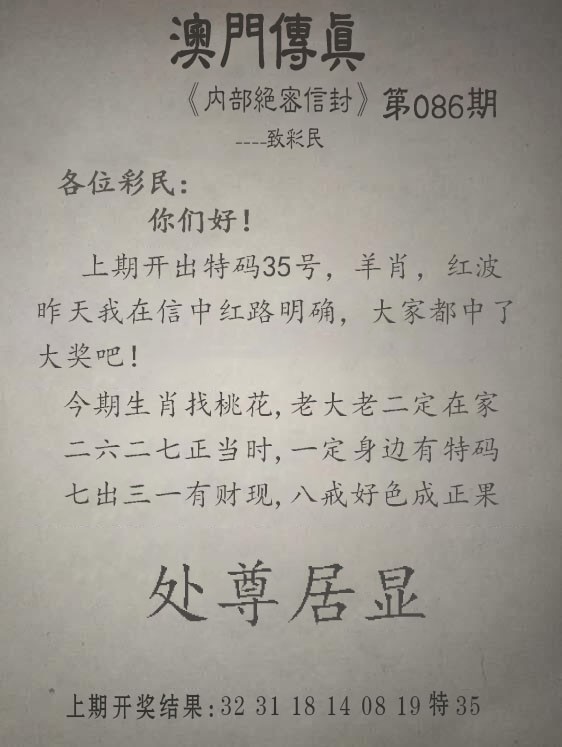 澳門傳眞
《内部絕密信封》第086期
----致彩民
各位彩民:
你们好!
上期开出特码35号，羊肖，红波
昨天我在信中红路明确，大家都中了
大奖吧!
今期生肖找桃花,老大老二定在家
二六二七正当时,一定身边有特码
七出三一有财现,八戒好色成正果
处尊居显
上期开奖结果:32 31 18 14 08 19 特35